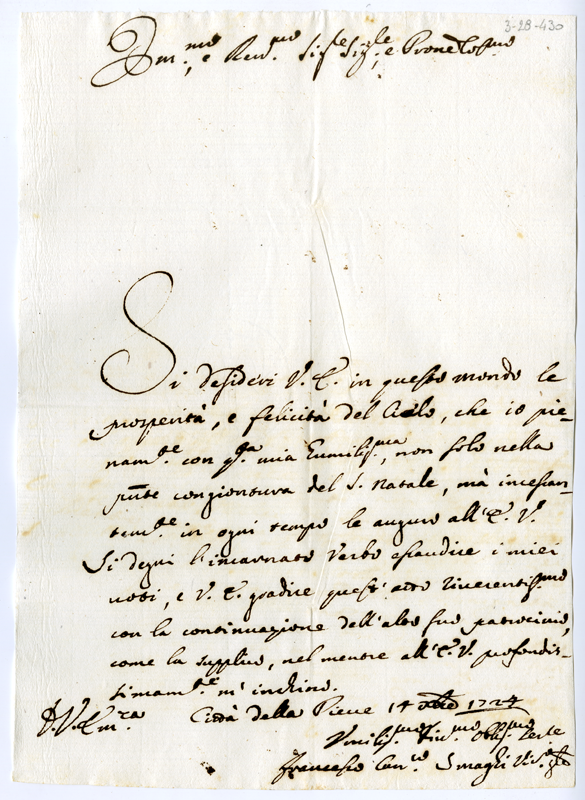 3-28-430
Em.mo e Rev.mo Sig.re Sig.re e Prone Col.mo
Si desideri V. E. in questo mondo le
prosperità, e felicità del Cielo, che io pie-
nam.te con q.ta mia Eumiliss.ma, non solo nella
pnte congiontura del S. Natale, mà incessan-
tem.te in ogni tempo le auguro all'E. V.
Si degni l'incarnato Verbo esaudire i miei
voti, e V. E. gradire quest'atto riverentiss.mo
con la continuazione dell'alto suo patrocinio,
come la supplico, nel mentre all'E. V. profondis-
simam.te m'inchino.
D. V. Em.za Città della Pieve 14 Xbre 1724
Umiliss.mo Div.mo Obblig.mo Serte
Francesco Can.co Smagli Vic.o